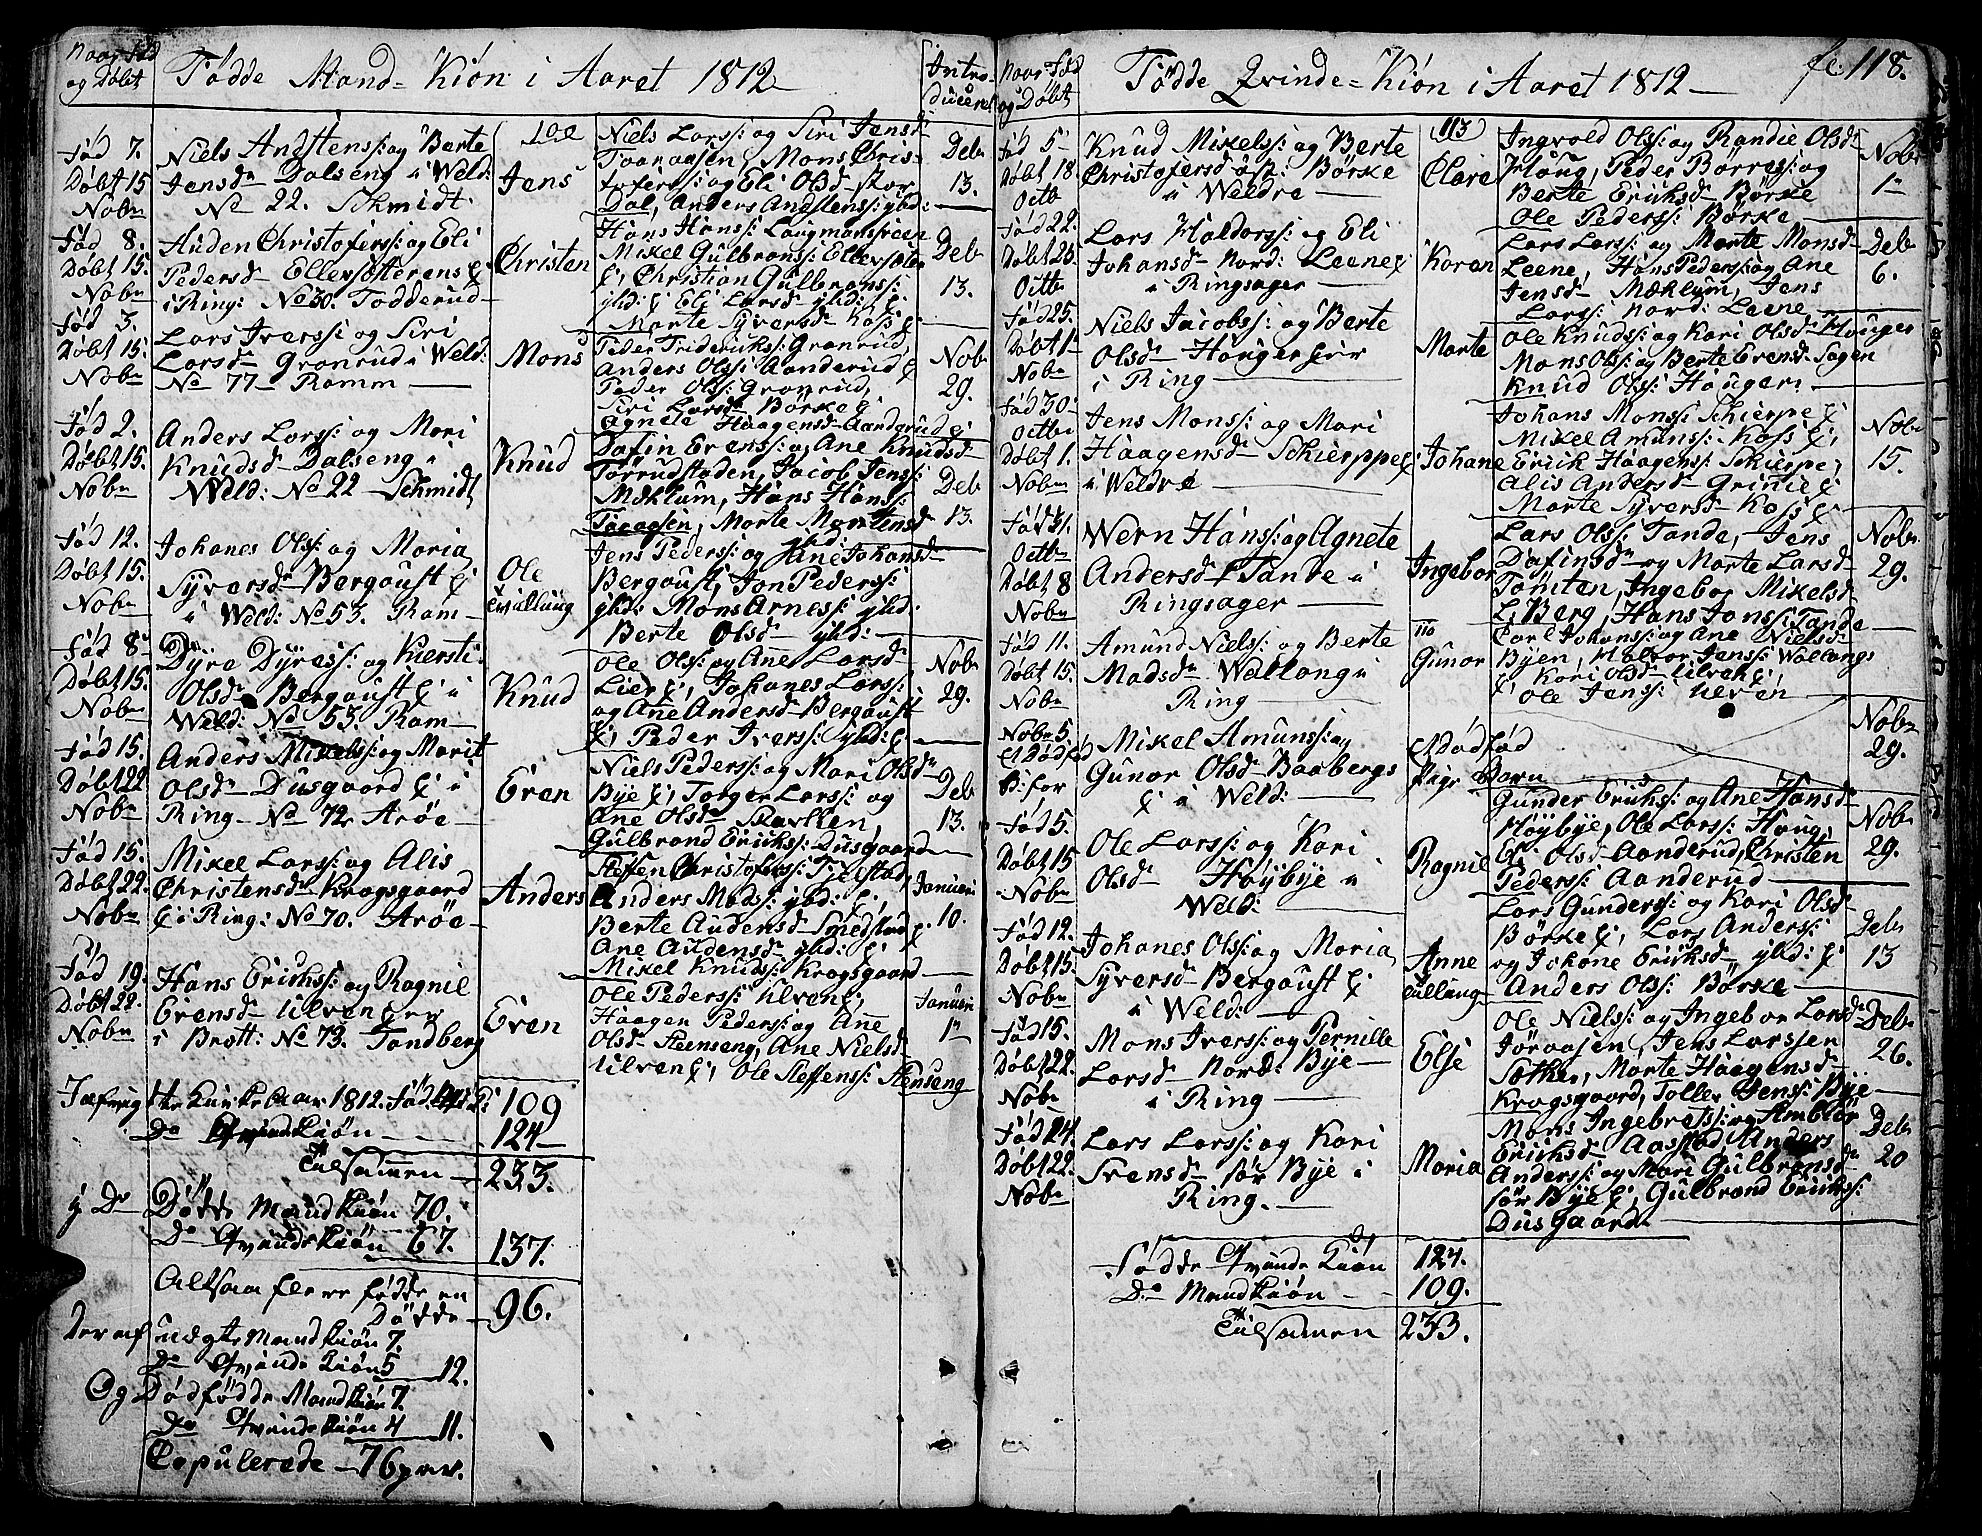 Naar Fød
og Døbt
Fødde Mand-Kiön i Aaret 1812
Intro-
duceret
Fød 7.
Døbt 15
Nobr
Niels Andstens: og Berte
Jensdr Dalseng i Weld:
No 22. Schmidt
Jens
Niels Lars: og Siri Jensdr
Taaraasen, Mons Chris-
tofers: og Eli Olsdr Stor
Dal, Anders Andstens: ybd:
Debr
13.
Fød 8.
Døbt 15.
Nobr
Auden Christofers: og Eli
Pedersdr Ellevsæterens
i Ring: No 30. Todderud
Christen
Hans Hans: Langmansveen
Mikel Gulbrans: Ellevsæter
Christian Gulbrans:
ybd: Eli Larsdr ybd:
Marte Syversdr Koss
Debr
13.
Fød 3.
Døbt 15.
Nobr
Lars Ivers: og Siri
Larsdr Granrud i Weld:
No 77 Ramm
Mons
Peder Fridericks: Granrud,
Anders Ols: Aanderud
Peder Ols: Granrud,
Siri Larsdr Børke
Agnete Haagensdr Aanderud
Nobr
29.
Fød 2.
Døbt 15.
Nobr
Anders Lars: og Mari
Knudsdr Dalseng i
Weld: No 22 Schmidt
Knud
Dafin Evens: og Ane Knudsdr
Torrudstaden, Jacob Jens:
Mæhlum, Hans Hans:
Taaasen, Marte Martensdr
ybd:
Debr
13.
Fød 12.
Døbt 15.
Nobr
Johanes Ols: og Maria
Syversdr Bergaust
i Weld: No 53. Ram
Ole
tvillung
Jens Peders: og Ane Johansdr
Bergaust, Jon Peders:
ybd: Mons Arnes: ybd:
Berte Olsdr ybd:
Fød 8
Døbt 15.
Nobr
Dyre Dyres: og Kiersti
Olsdr Bergaust i
Weld: No 53 Ram
Knud
Ole Ols: og Ane Larsdr
Lier, Johanes Lars:
og Ane Andersdr Bergaust
Peder Ivers: ybd:
Nobr
29.
Fød 15.
Døbt 22
Nobr
Anders Mikels: og Marit
Olsdr Dusgaard i
Ring No 72 Arøe
Even
Niels Peders: og Mari Olsdr
Bye, Torger Lars: og
Ane Olsdr Skarllen
Gulbrand Ericks: Dusgaard
Debr
13.
Fød 15.
Døbt 22.
Nobr
Mikel Lars: og Alis
Christensdr Kragsgaard
i Ring: No 70. Arøe
Anders
Steffen Christofers: Tjelstad,
Anders Mads: ybd:
Berte Audensdr Smedstad
Ane Audensdr ybd:
Mikel Knuds: Kragsgaard
Januari
10.
Fød 19.
Døbt 22.
Nobr
Hans Ericks: og Ragnil
Evensdr Ulven
i Brøtt: No 73. Tandberg
Even
Ole Peders: Ulven,
Haagen Peders: og Ane
Olsdr Steenseng, Ane Nielsdr
Ulven, Ole Steffens: Stenseng
Januari
1
Kirke Aar 1812. Fød 109
Do Qvindekiön 124
Tilsamen 233.
Do Dödde Mandkiön 70.
Do Qvindekiön 67. 137.
Altsaa flere fødde en
Dödde 96.
Deraf uægte Mandkiön 7.
Do Qvinde Kiön 5 12.
Og Dødfødde Mandkiön 7.
Do Qvindekiön 4 11.
Copulerede 76 par.
Naar Fød
og Døbt
Födde Qvinde-Kiön i Aaret 1812
fol: 118.
Fød 5
Døbt 18
Octb
Knud Mikels: og Berte
Christofersdr öst: Börke
i Weldre
113
Clare
Ingvold Ols: og Randie Olsdr
Houg, Peder Börres: og
Berte Ericksdr Börke
Ole Peders: Börke
Nobr
1
Fød 22.
Døbt 25.
Octb
Lars Haldors: og Eli
Johansdr Nord: Leene
i Ringsager
Karen
Lars Lars: og Marte Monsdr
Leene, Hans Peders: og Ane
Jensdr Mæhlum, Jens
Lars: Nord: Leene
Debr
6.
Fød 25.
Døbt 1
Nobr
Niels Jacobs: og Berte
Olsdr Hougerhier
i Ring
Marte
Ole Knuds: og Kari Olsdr Houger
Mons Ols: og Berte Evensdr Sagen
Knud Ols: Hougen
Fød 30
Octb
Døbt 1.
Nobr
Jens Mons: og Mari
Haagensdr Schierppe
i Weldre
Johane
Johans Mons: Schierpe
Mikel Amuns: Koss
Erick Haagens: Schierpe,
Alis Andersdr Grinie
Marte Syversdr Koss
Nobr
15.
Fød 31.
Octb
Døbt 8
Nobr
Wern Hans: og Agnete
Andersdr Tande i
Ringsager
Ingebor
Lars Ols: Tande, Jens
Dafinsdr og Marte Larsdr
Tömten, Ingebor Mikelsdr
L: Berg, Hans Jons: Tande
Nobr
29.
Fød 11.
Døbt 15.
Nobr
Amund Niels: og Berte
Madsdr Wallang i
Ring
110
Gunor
Carl Johans: og Ane Nielsdr
Byen, Halvor Jens: Wallangs
Kari Olsdr Ulven
Ole Jens: Ulven
Nobr 5.
Mikel Amuns: og
Gunor Olsdr Baabergs
i Weld:
Et Dødfød
Pige Barn
Nobr
29.
Fød 5.
Døbt 15
Nobr
Ole Lars: og Kari
Olsdr Høybye i
Weld:
Ragnil
Gunder Ericks: og Ane Hansdr
Høybye, Ole Lars: Houg,
Eli Olsdr Aanderud, Christen
Peders: Aanderud
Nobr
29.
Fød 12.
Døbt 15.
Nobr
Johanes Ols: og Maria
Syversdr Bergaust
i Weld:
Anne
tvillung
Lars Gunders: og Kari Olsdr
Börke, Lars Anders:
og Johane Ericksdr ybd:
Anders Ols: Børke
Debr
13
Fød 15.
Døbt 22.
Nobr
Mons Ivers: og Pernille
Larsdr Nord: Bye
i Ring
Else
Ole Niels: og Ingebor Larsdr
Jøraasen, Jens Larssen
Sother, Marte Haagensdr
Kragsgaard, Tollev Jens: Bye
Debr
26.
Fød 24.
Døbt 22.
Nobr
Lars Lars: og Kari
Svensdr sør Bye i
Ring.
Maria
Mons Ingebrets: og Ambiör
Ericksdr Aastad, Anders
Anders: og Mari Gulbransdr
sør Bye, Gulbrand Ericks:
Dusgaard
Debr
20
Födde Qvinde Kiön 124.
Do Mandkiön 109.
Tilsamen 233.